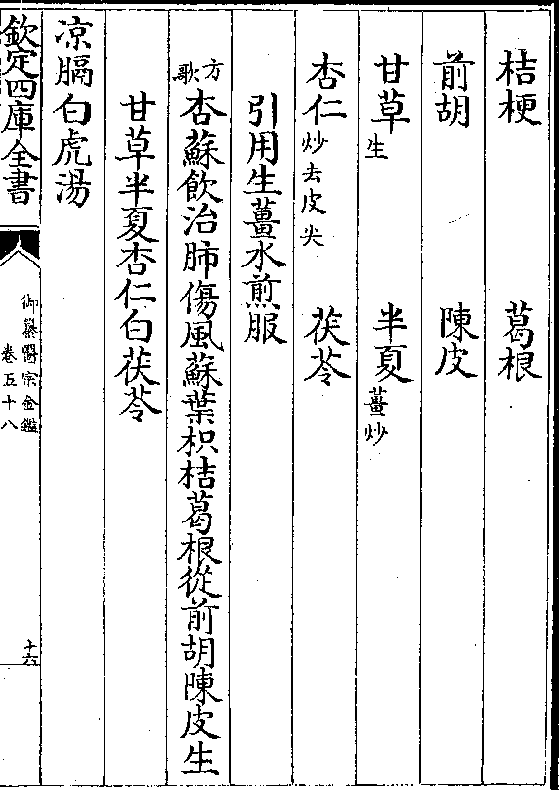 桔梗 葛根
前胡 陳皮
甘草生 半夏薑炒
杏仁炒去皮尖 茯苓
引用生薑水煎服
方歌 杏蘇飲治肺傷風蘇葉枳桔葛根從前胡陳皮生
甘草半夏杏仁白茯苓
凉膈白虎湯
欽定四庫全書
御纂醫宗金鑑
卷五十八
十六